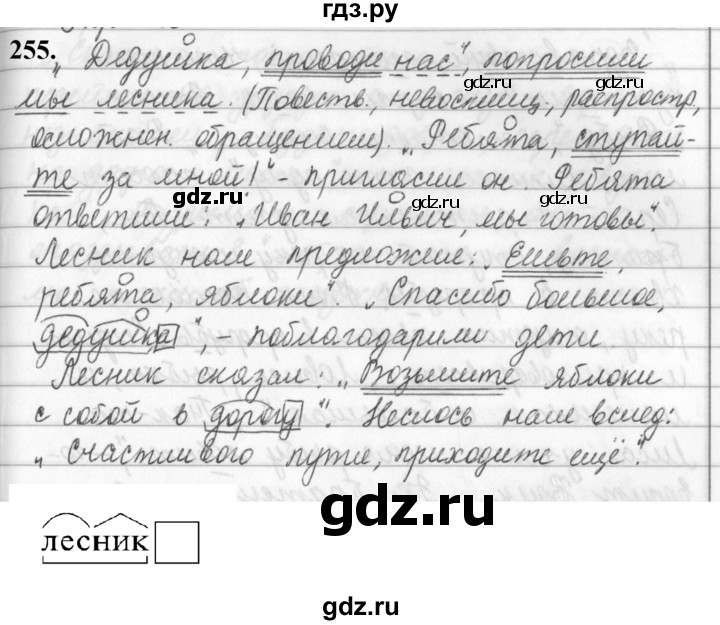 гдз.ру
255.
„Дедушка, проводи нас", попросили
мы лесника. (Повеств., невосклиц., распростр,
осложнен. обращением). „Ребята, ступай-
те за мной!" - пригласил он. Ребята
ответили: „Иван Ильич, мы готовы".
Лесник нам предложил: „Ешьте,
ребята, яблоки". „Спасибо большое,
дедушка", - поблагодарили дети.
Лесник сказал: „Возьмите яблоки
с собой в дорогу". Неслось нам вслед:
„Счастливого пути, приходите ещё".
лесник
gdz.ru
gdz.ru
gdz.ru
gdz.ru
gdz.ru
gdz.ru
gdz.ru
gdz.ru
gdz.ru